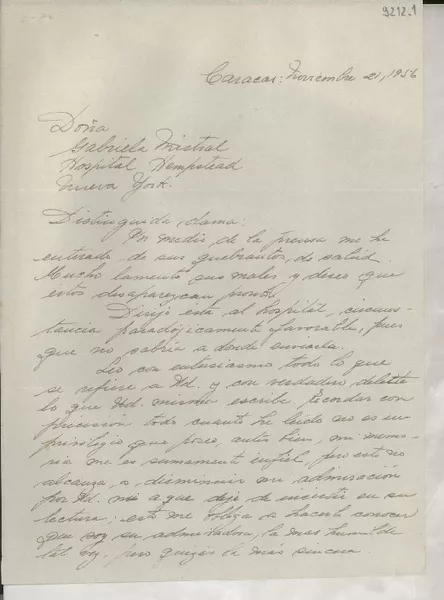 9212.1
Caracas: Noviembre 21, 1956
Doña
Gabriela Mistral
Hospital Hempstead
Nueva York.
Distinguida dama:
Por medio de la prensa me he
enterado de sus quebrantos de salud.
Mucho lamento sus males y deseo que
éstos desaparezcan pronto.
Dirijo esta al hospital, circuns-
tancia paradójicamente favorable, pues
que no sabría a donde enviarla.
Leo con entusiasmo todo lo que
se refiere a Ud. y con verdadero deleite
lo que Ud. misma escribe. Recordar con
precisión todo cuanto he leído no es un
privilegio que poseo, antes bien, mi memo-
ria me es sumamente infiel, pero esto no
alcanza a disminuir mi admiración
por Ud. ni a que deje de insistir en su
lectura; esto me obliga a hacerle conocer
que soy su admiradora, la mas humilde
tal vez, pero quizás la mas sincera.